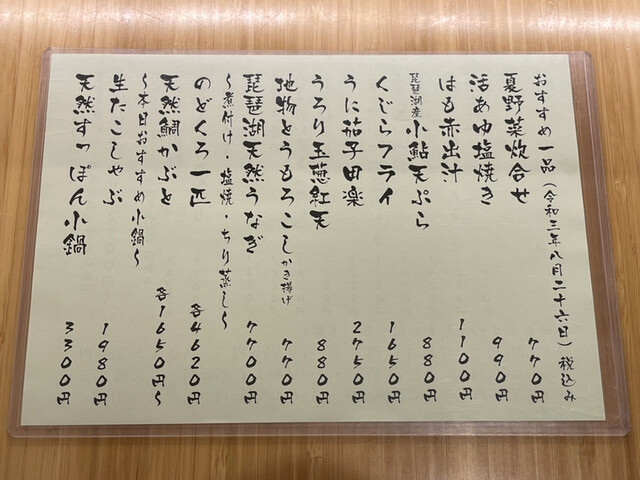 おすすめ一品(令和三年八月二十六日)税込み
夏野菜炊合せ 770円
活あゆ塩焼き 990円
はも赤出汁 1100円
琵琶湖産小鮎天ぷら 880円
くじらフライ 1650円
うに茄子田楽 2750円
うろり玉葱紅天 880円
地物とうもろこしかき揚げ 770円
琵琶湖天然うなぎ 7700円
〜煮付け・塩焼・ちり蒸し〜
のどくろ一匹 各4620円
天然鯛かぶと 各1650円〜
〜本日おすすめ小鍋〜
生たこしゃぶ 1980円
天然すっぽん小鍋 3300円